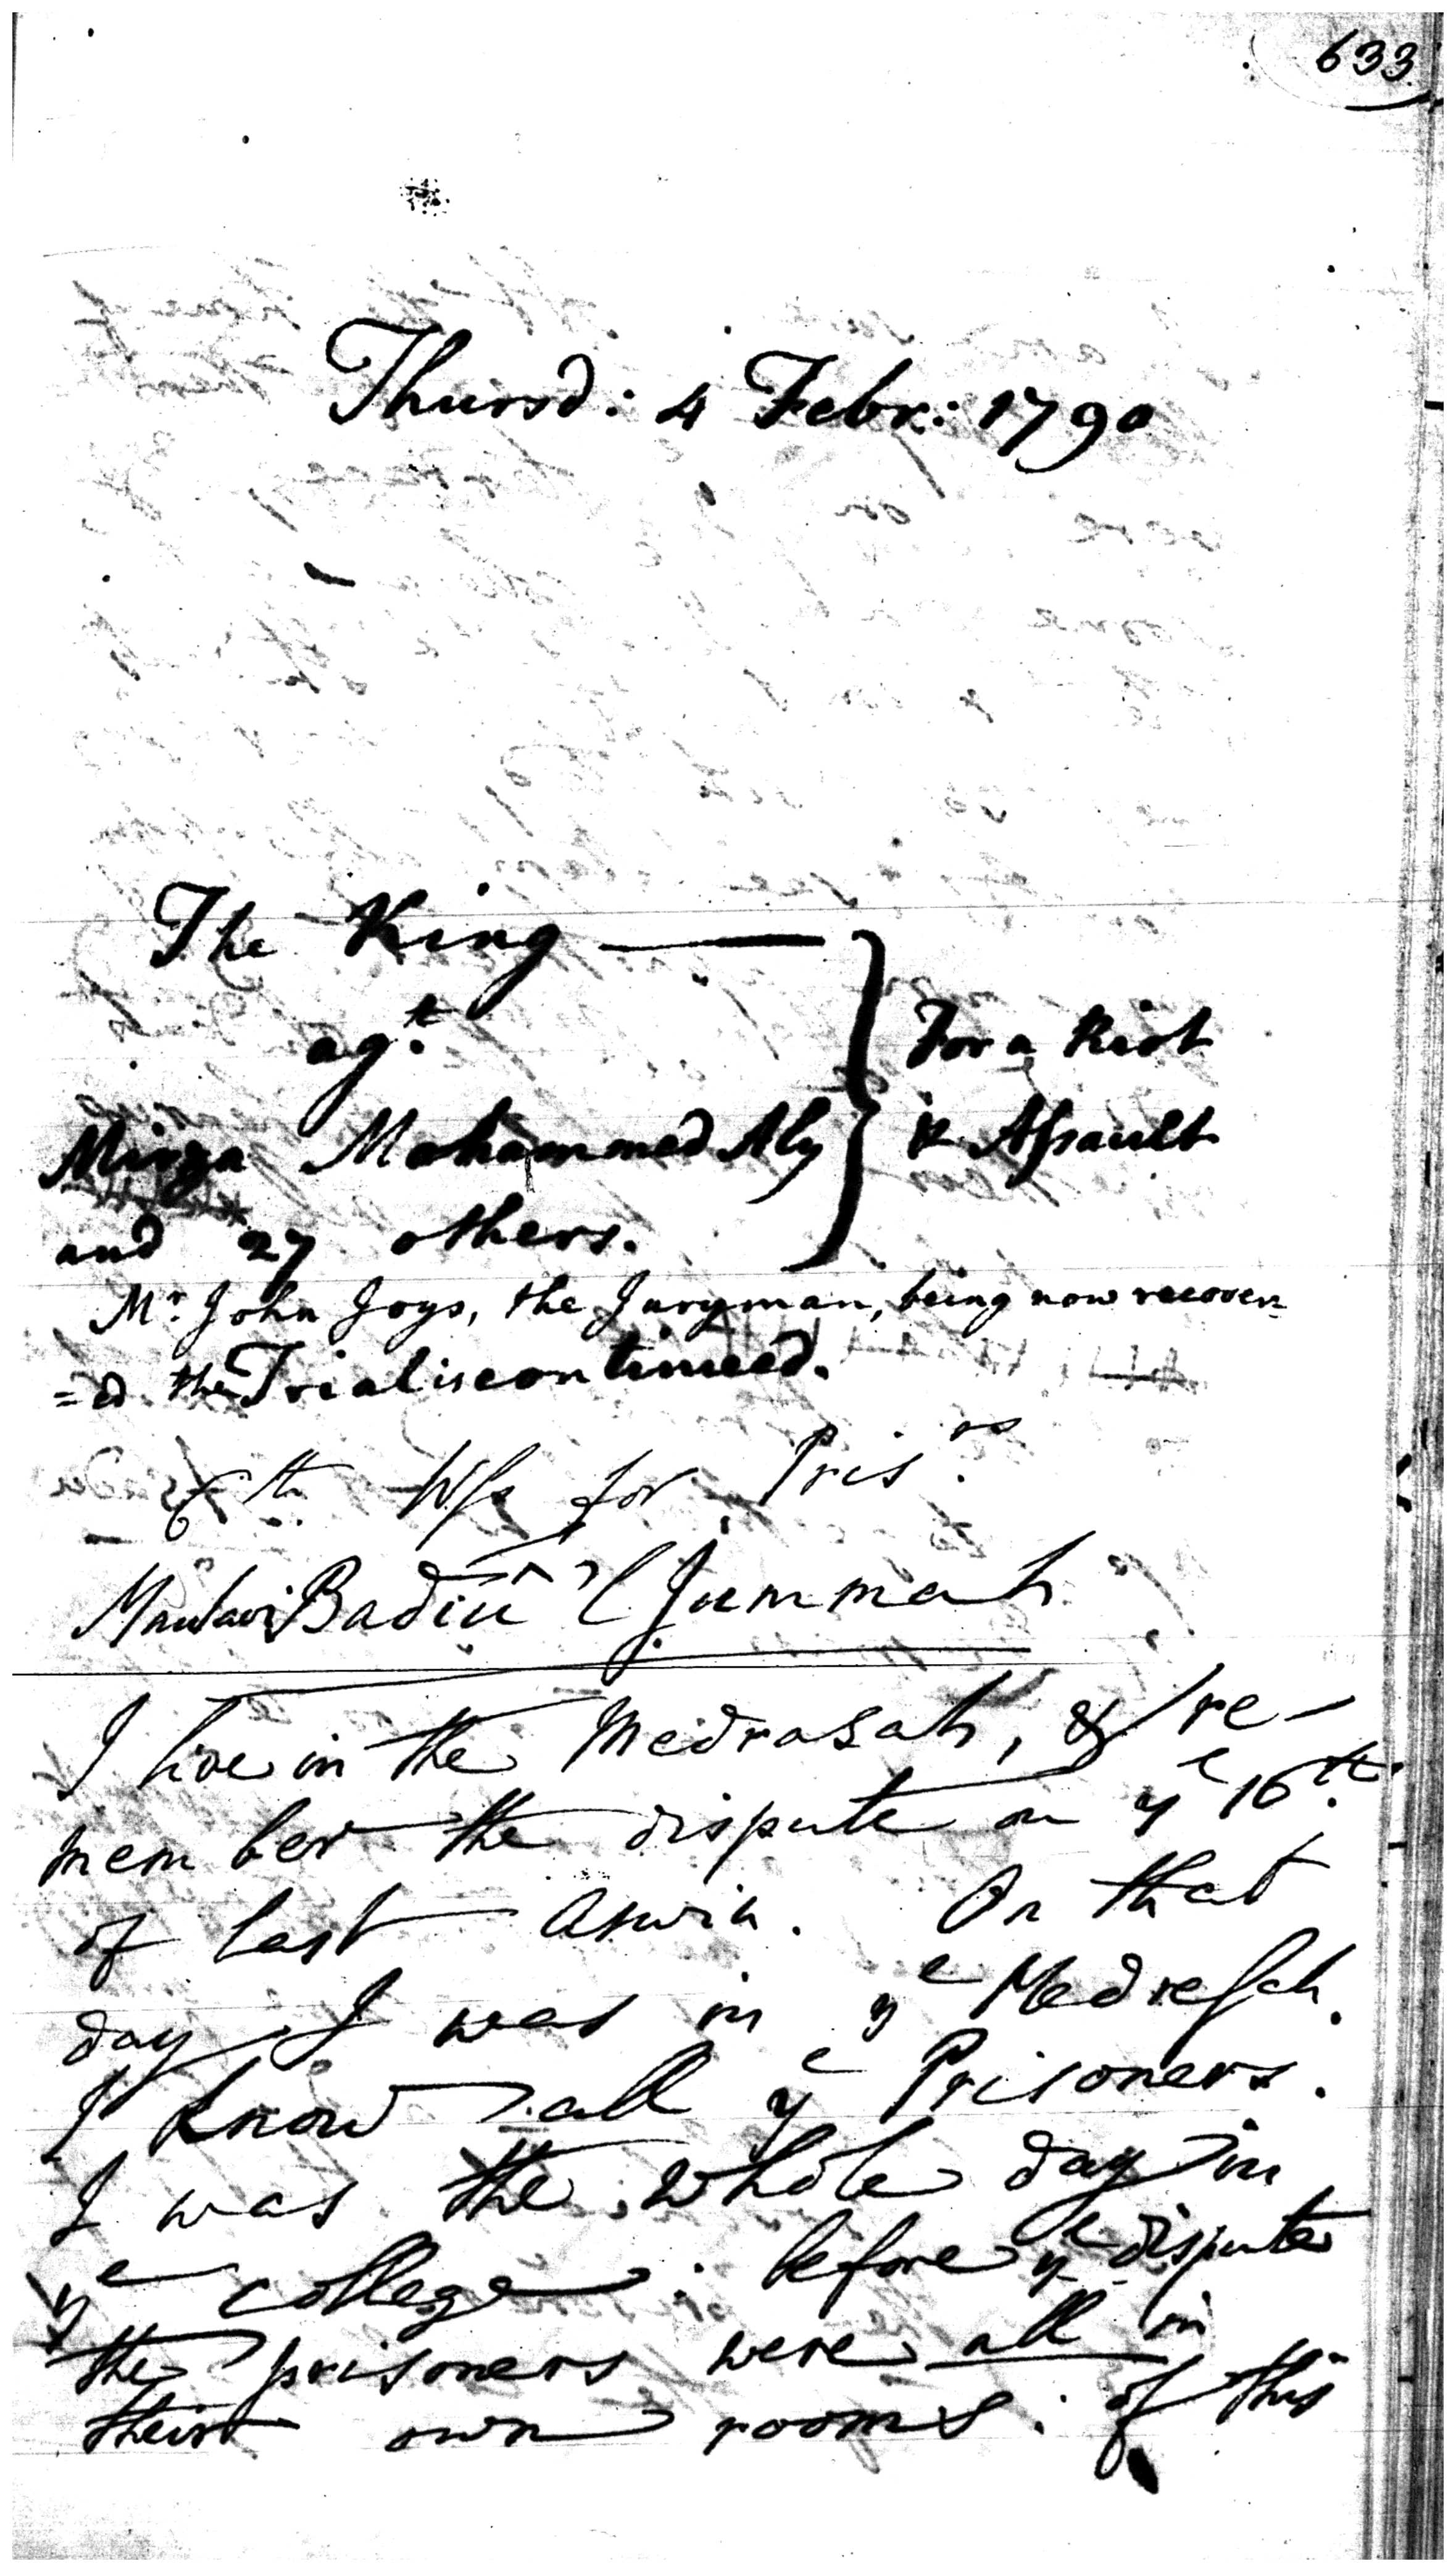 633
Thursd: 4 Febr: 1790
The King
agt.
For a Riot
Mirza Mohammed Aly
& Assault
and 27 others.
Mr. John Joys, the Juryman, being now recover
=ed the Trial is continued.
6th Wss for Prisrs.
Maulavi Badiu'l Jummah
I live in the Medrasah, & re-
member the dispute on ye 16th.
of last Aswin. On that
day I was in ye Medressah.
I know all ye Prisoners.
I was the whole day in
ye college: before ye dispute
the prisoners were all in
their own rooms: of this